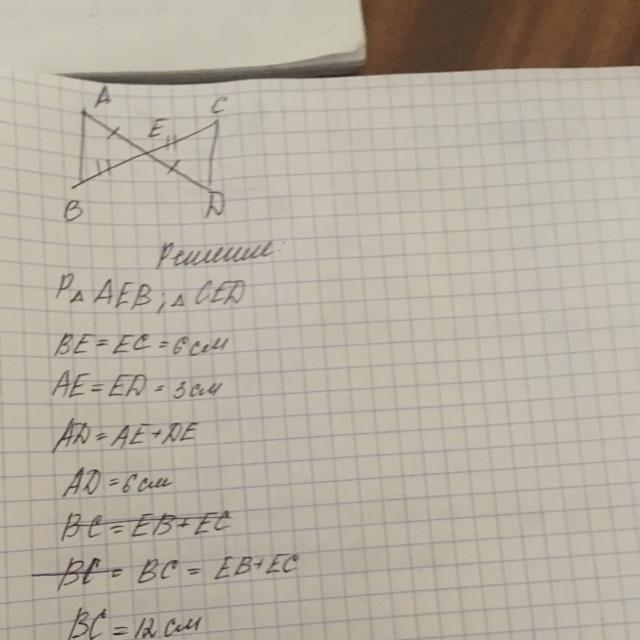 A C
E
B D
Решение:
P△ AEB, △ CED
BE = EC = 6 см
AE = ED = 3 см
AD = AE + DE
AD = 6 см
BC = EB + EC
BC = BC = EB + EC
BC = 12 см